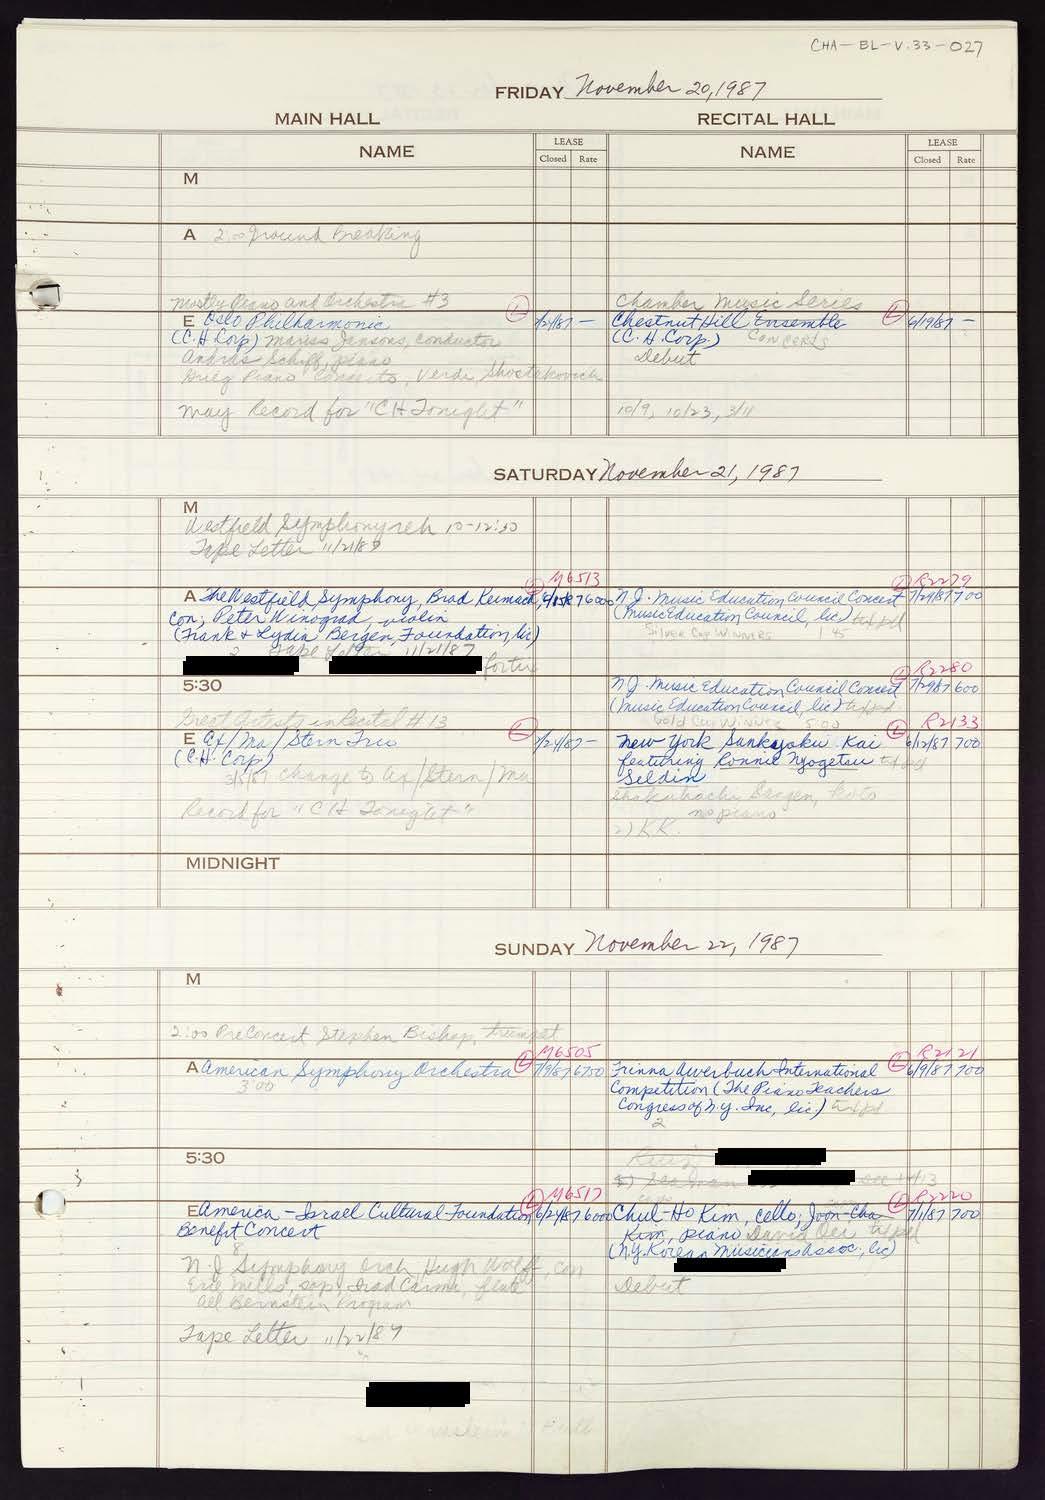 CHA-BL-V.33-027
FRIDAY November 20, 1987
MAIN HALL
RECITAL HALL
NAME
LEASE
Closed Rate
NAME
LEASE
Closed Rate
M
A 2:00 Ground Breaking
Mostly Piano and Orchestra #3
E Oslo Philharmonic
7/21/87 —
(C.H. Corp) Mariss Jansons, conductor
Andras Schiff, piano
Grieg Piano Concerto, Verdi, Shostakovich
May Record for "CH Tonight"
Chamber Music Series
Chestnut Hill Ensemble
6/19/87 —
(C.H. Corp.) CONCERTS
Debut
10/9, 10/23, 3/11
SATURDAY November 21, 1987
M
Westfield Symphony reh 10-12:30
Tape Letter 11/21/87
M6513
A The Westfield Symphony, Brad Keimach,
6/15/87 6000
con; Peter Winograd, violin
(Frank & Lydia Bergen Foundation, lic)
2 Tape Letter 11/21/87
R2279
N.J. Music Education Council Concert
7/29/87 700
(Music Education Council, lic) txt pd
Silver Cup WINNERS 1:45
5:30
R2280
N.J. Music Education Council Concert
7/29/87 600
(Music Education Council, lic) txt pd
Gold Cup Winner 5:00
Great Artists in Recital #13
E Ax/Ma/Stern Trio
7/21/87 —
(C.H. Corp)
3/5/87 change to Ax/Stern/Ma
Record for "CH Tonight"
R2133
New York Sankyoku Kai
6/12/87 700
featuring Ronnie Nyogetsu txt pd
Seldin
Shakuhachi, Sangen, Koto
no piano
2) KK.
MIDNIGHT
SUNDAY November 22, 1987
M
2:00 PreConcert Stephen Bishop, trumpet
M6505
A American Symphony Orchestra
7/9/87 6750
3:00
R2121
Frinna Awerbuch International
6/9/87 700
Competition (The Piano Teachers
Congress of N.Y. Inc, lic) txt pd
2
5:30
M6517
E America-Israel Cultural Foundation
6/24/87 6000
Benefit Concert
8
N.J. Symphony Orch, Hugh Wolff, con
Erie Mills, sop, Irad Carmi, flute
All Bernstein Program
Tape Letter 11/22/87
R2220
Chul-Ho Kim, cello; Joon-Cha
7/1/87 700
Kim, piano David Oei txt pd
(N.Y. Korean Musicians Assoc., lic)
Debut